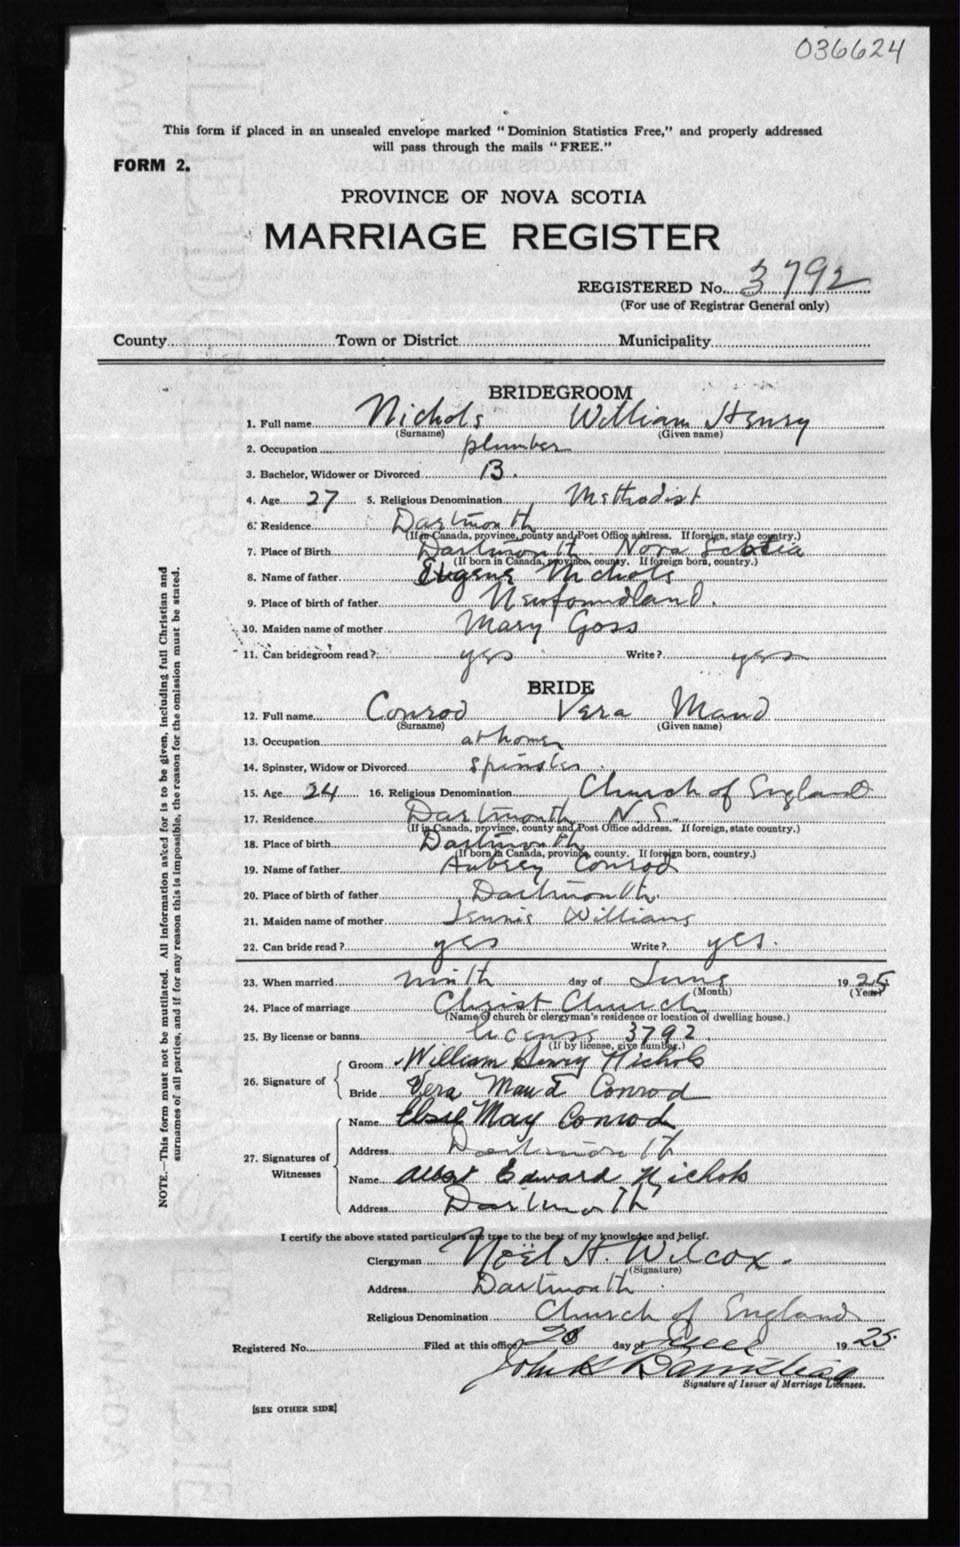 036624
This form if placed in an unsealed envelope marked "Dominion Statistics Free," and properly addressed
will pass through the mails "FREE."
FORM 2.
PROVINCE OF NOVA SCOTIA
MARRIAGE REGISTER
REGISTERED No. 3792
(For use of Registrar General only)
County Town or District Municipality
BRIDEGROOM
1. Full name Nichols William Henry
(Surname) (Given name)
2. Occupation plumber
3. Bachelor, Widower or Divorced B.
4. Age 27 5. Religious Denomination Methodist
6. Residence Dartmouth
(If in Canada, province, county and Post Office address. If foreign, state country.)
7. Place of Birth Dartmouth Nova Scotia
(If born in Canada, province, county. If foreign born, country.)
8. Name of father Eugene Nichols
9. Place of birth of father Newfoundland.
10. Maiden name of mother Mary Goss
11. Can bridegroom read? yes Write? yes
BRIDE
12. Full name Conrod Vera Maud
(Surname) (Given name)
13. Occupation at home
14. Spinster, Widow or Divorced spinster
15. Age 24 16. Religious Denomination Church of England
17. Residence Dartmouth N.S.
(If in Canada, province, county and Post Office address. If foreign, state country.)
18. Place of birth Dartmouth
(If born in Canada, province, county. If foreign born, country.)
19. Name of father Aubrey Conrod
20. Place of birth of father Dartmouth
21. Maiden name of mother Jennie Williams
22. Can bride read? yes Write? yes.
23. When married ninth day of June 1925
(Month) (Year)
24. Place of marriage Christ Church
(Name of church or clergyman's residence or location of dwelling house.)
25. By license or banns license 3792
(If by license, give number.)
26. Signature of
Groom William Henry Nichols
Bride Vera Maud Conrod
27. Signatures of Witnesses
Name Elsie May Conrod
Address Dartmouth
Name Albert Edward Nichols
Address Dartmouth
I certify the above stated particulars are true to the best of my knowledge and belief.
Clergyman Noël H. Wilcox.
(Signature)
Address Dartmouth
Religious Denomination Church of England
Registered No. Filed at this office 20 day of 1925
John
Signature of Issuer of Marriage Licenses.
[SEE OTHER SIDE]
NOTE.—This form must not be mutilated. All information asked for is to be given, including full Christian and
surnames of all parties, and if for any reason this is impossible, the reason for the omission must be stated.